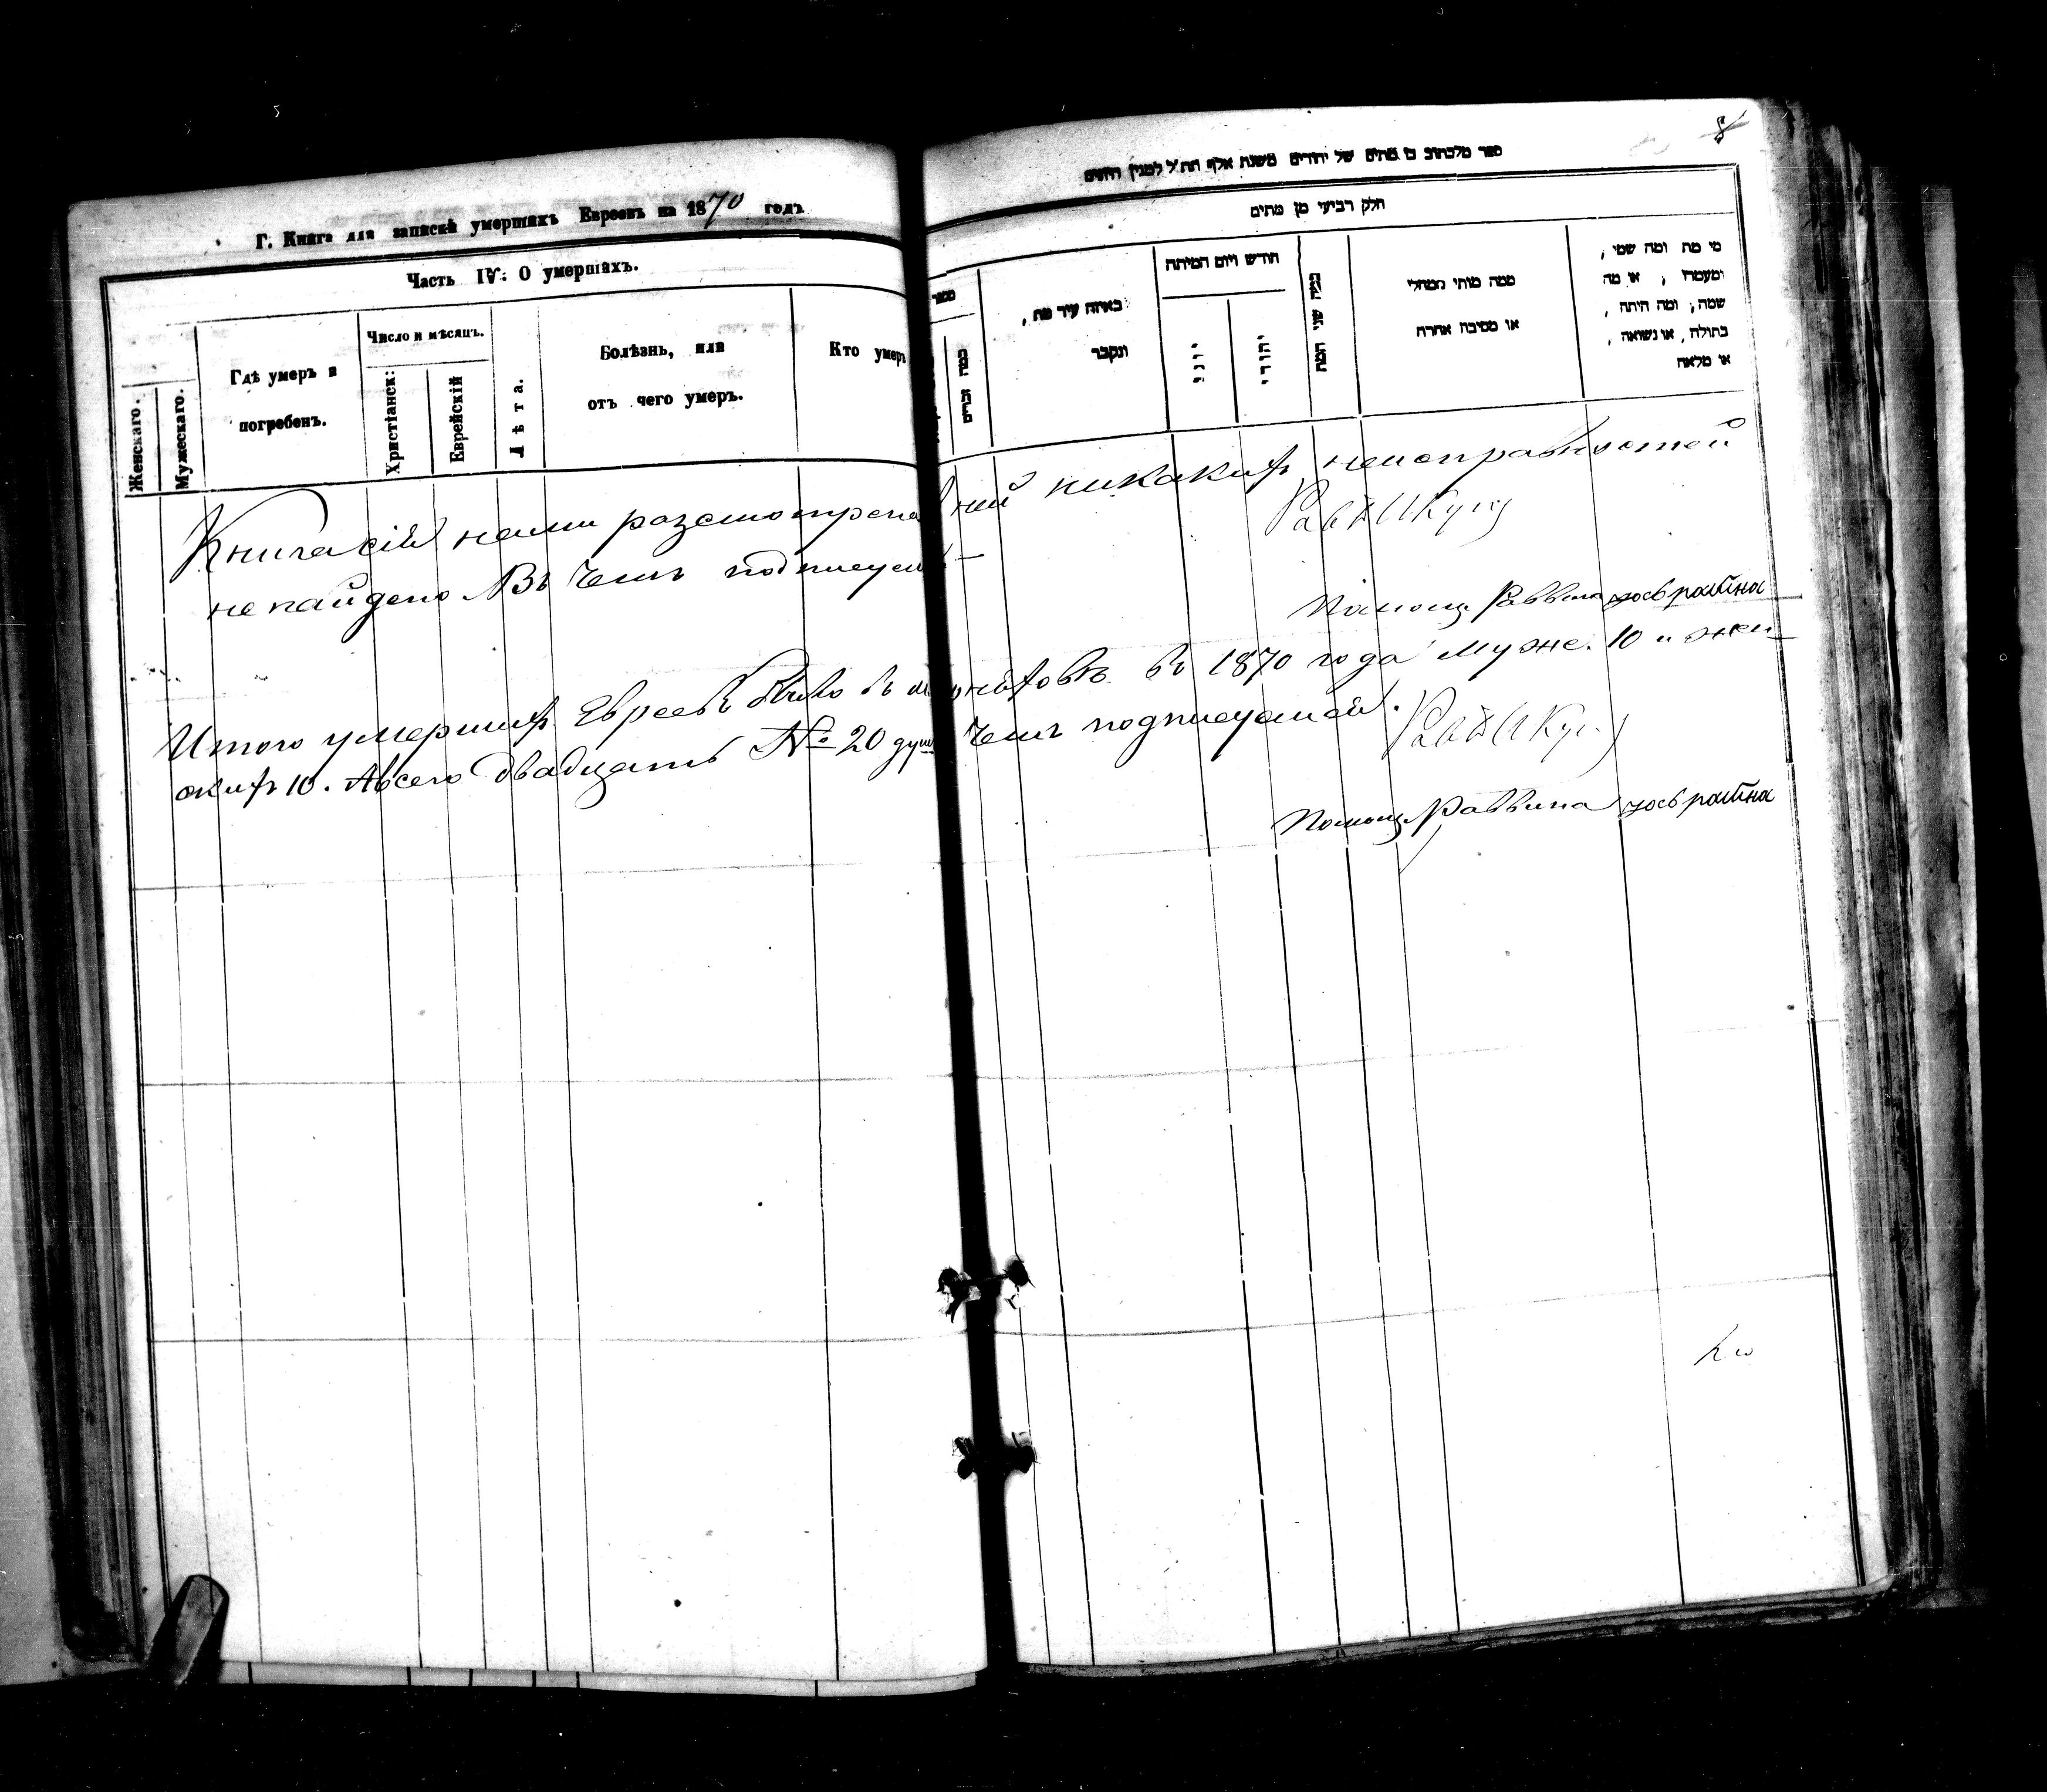 Г. Книга для записки умершихъ Евреевъ на 1870 годъ
Часть IV: О умершихъ.
Женскаго.
Мужескаго.
Гдѣ умеръ и
погребенъ.
Число и мѣсяцъ.
Христіанск:
Еврейскій
Лѣта.
Болѣзнь, или
отъ чего умеръ.
Кто умеръ
חלק רביעי מן מתים
מספר
כמה זכרים
באיזה עיר מת,
ונקבר
חודש ויום המיתה
יוני
יהודי
כמה שני המת
ממה מותי ממחלי
או מסיבה אחרת
מי מת ומה שמי,
ומעמדו; או מה
שמה; ומה היתה,
בתולה, או נשואה,
או מלאה
Книга сій нами разсмотрена ней никакихъ неисправностей
не найдено Въ чемъ подписуемъ
Помощ. Раввина
Итого умершихъ Евреевъ было въ въ 1870 года муже. 10 и жен
скихъ 10. А всего двадцать № 20 душъ чемъ подписуемся.
Помощ. Раввина